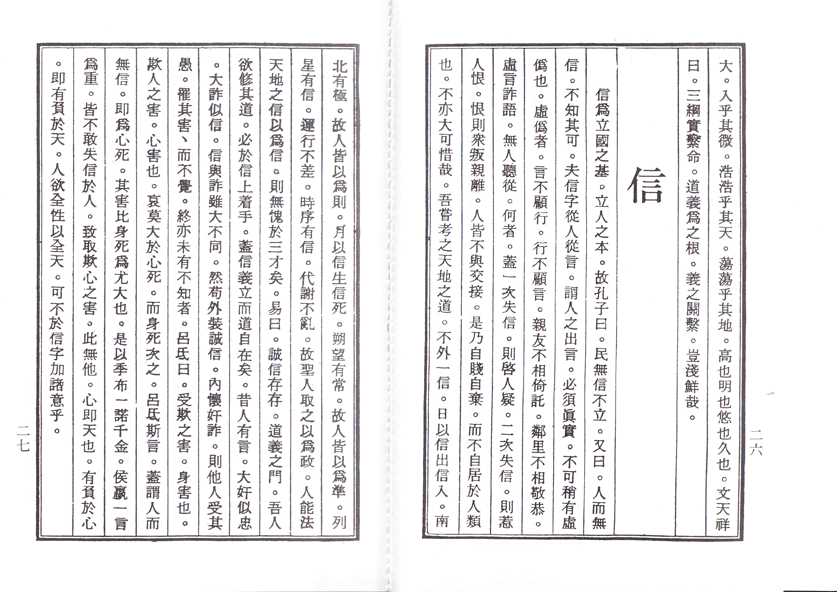 大。入乎其微。浩浩乎其天。蕩蕩乎其地。高也明也悠也久也。文天祥
曰。三綱實繫命。道義爲之根。義之關繫。豈淺鮮哉。
信
信爲立國之基。立人之本。故孔子曰。民無信不立。又曰。人而無
信。不知其可。夫信字從人從言。謂人之出言。必須眞實。不可稍有虛
僞也。虛僞者。言不顧行。行不顧言。親友不相倚託。鄰里不相敬恭。
虛言詐語。無人聽從。何者。蓋一次失信。則啓人疑。二次失信。則惹
人恨。恨則衆叛親離。人皆不與交接。是乃自賤自棄。而不自居於人類
也。不亦大可惜哉。吾嘗考之天地之道。不外一信。日以信出信入。南
二六
北有極。故人皆以爲則。月以信生信死。朔望有常。故人皆以爲準。列
星有信。運行不差。時序有信。代謝不亂。故聖人取之以爲政。人能法
天地之信以爲信。則無愧於三才矣。易曰。誠信存存。道義之門。吾人
欲修其道。必於信上着手。蓋信義立而道自在矣。昔人有言。大奸似忠
。大詐似信。信與詐雖大不同。然苟外裝誠信。內懷奸詐。則他人受其
愚。罹其害、而不覺。終亦未有不知者。呂氏曰。受欺之害。身害也。
欺人之害。心害也。哀莫大於心死。而身死次之。呂氏斯言。蓋謂人而
無信。即爲心死。其害比身死爲尤大也。是以季布一諾千金。侯嬴一言
爲重。皆不敢失信於人。致取欺心之害。此無他。心即天也。有負於心
。即有負於天。人欲全性以全天。可不於信字加諸意乎。
二七